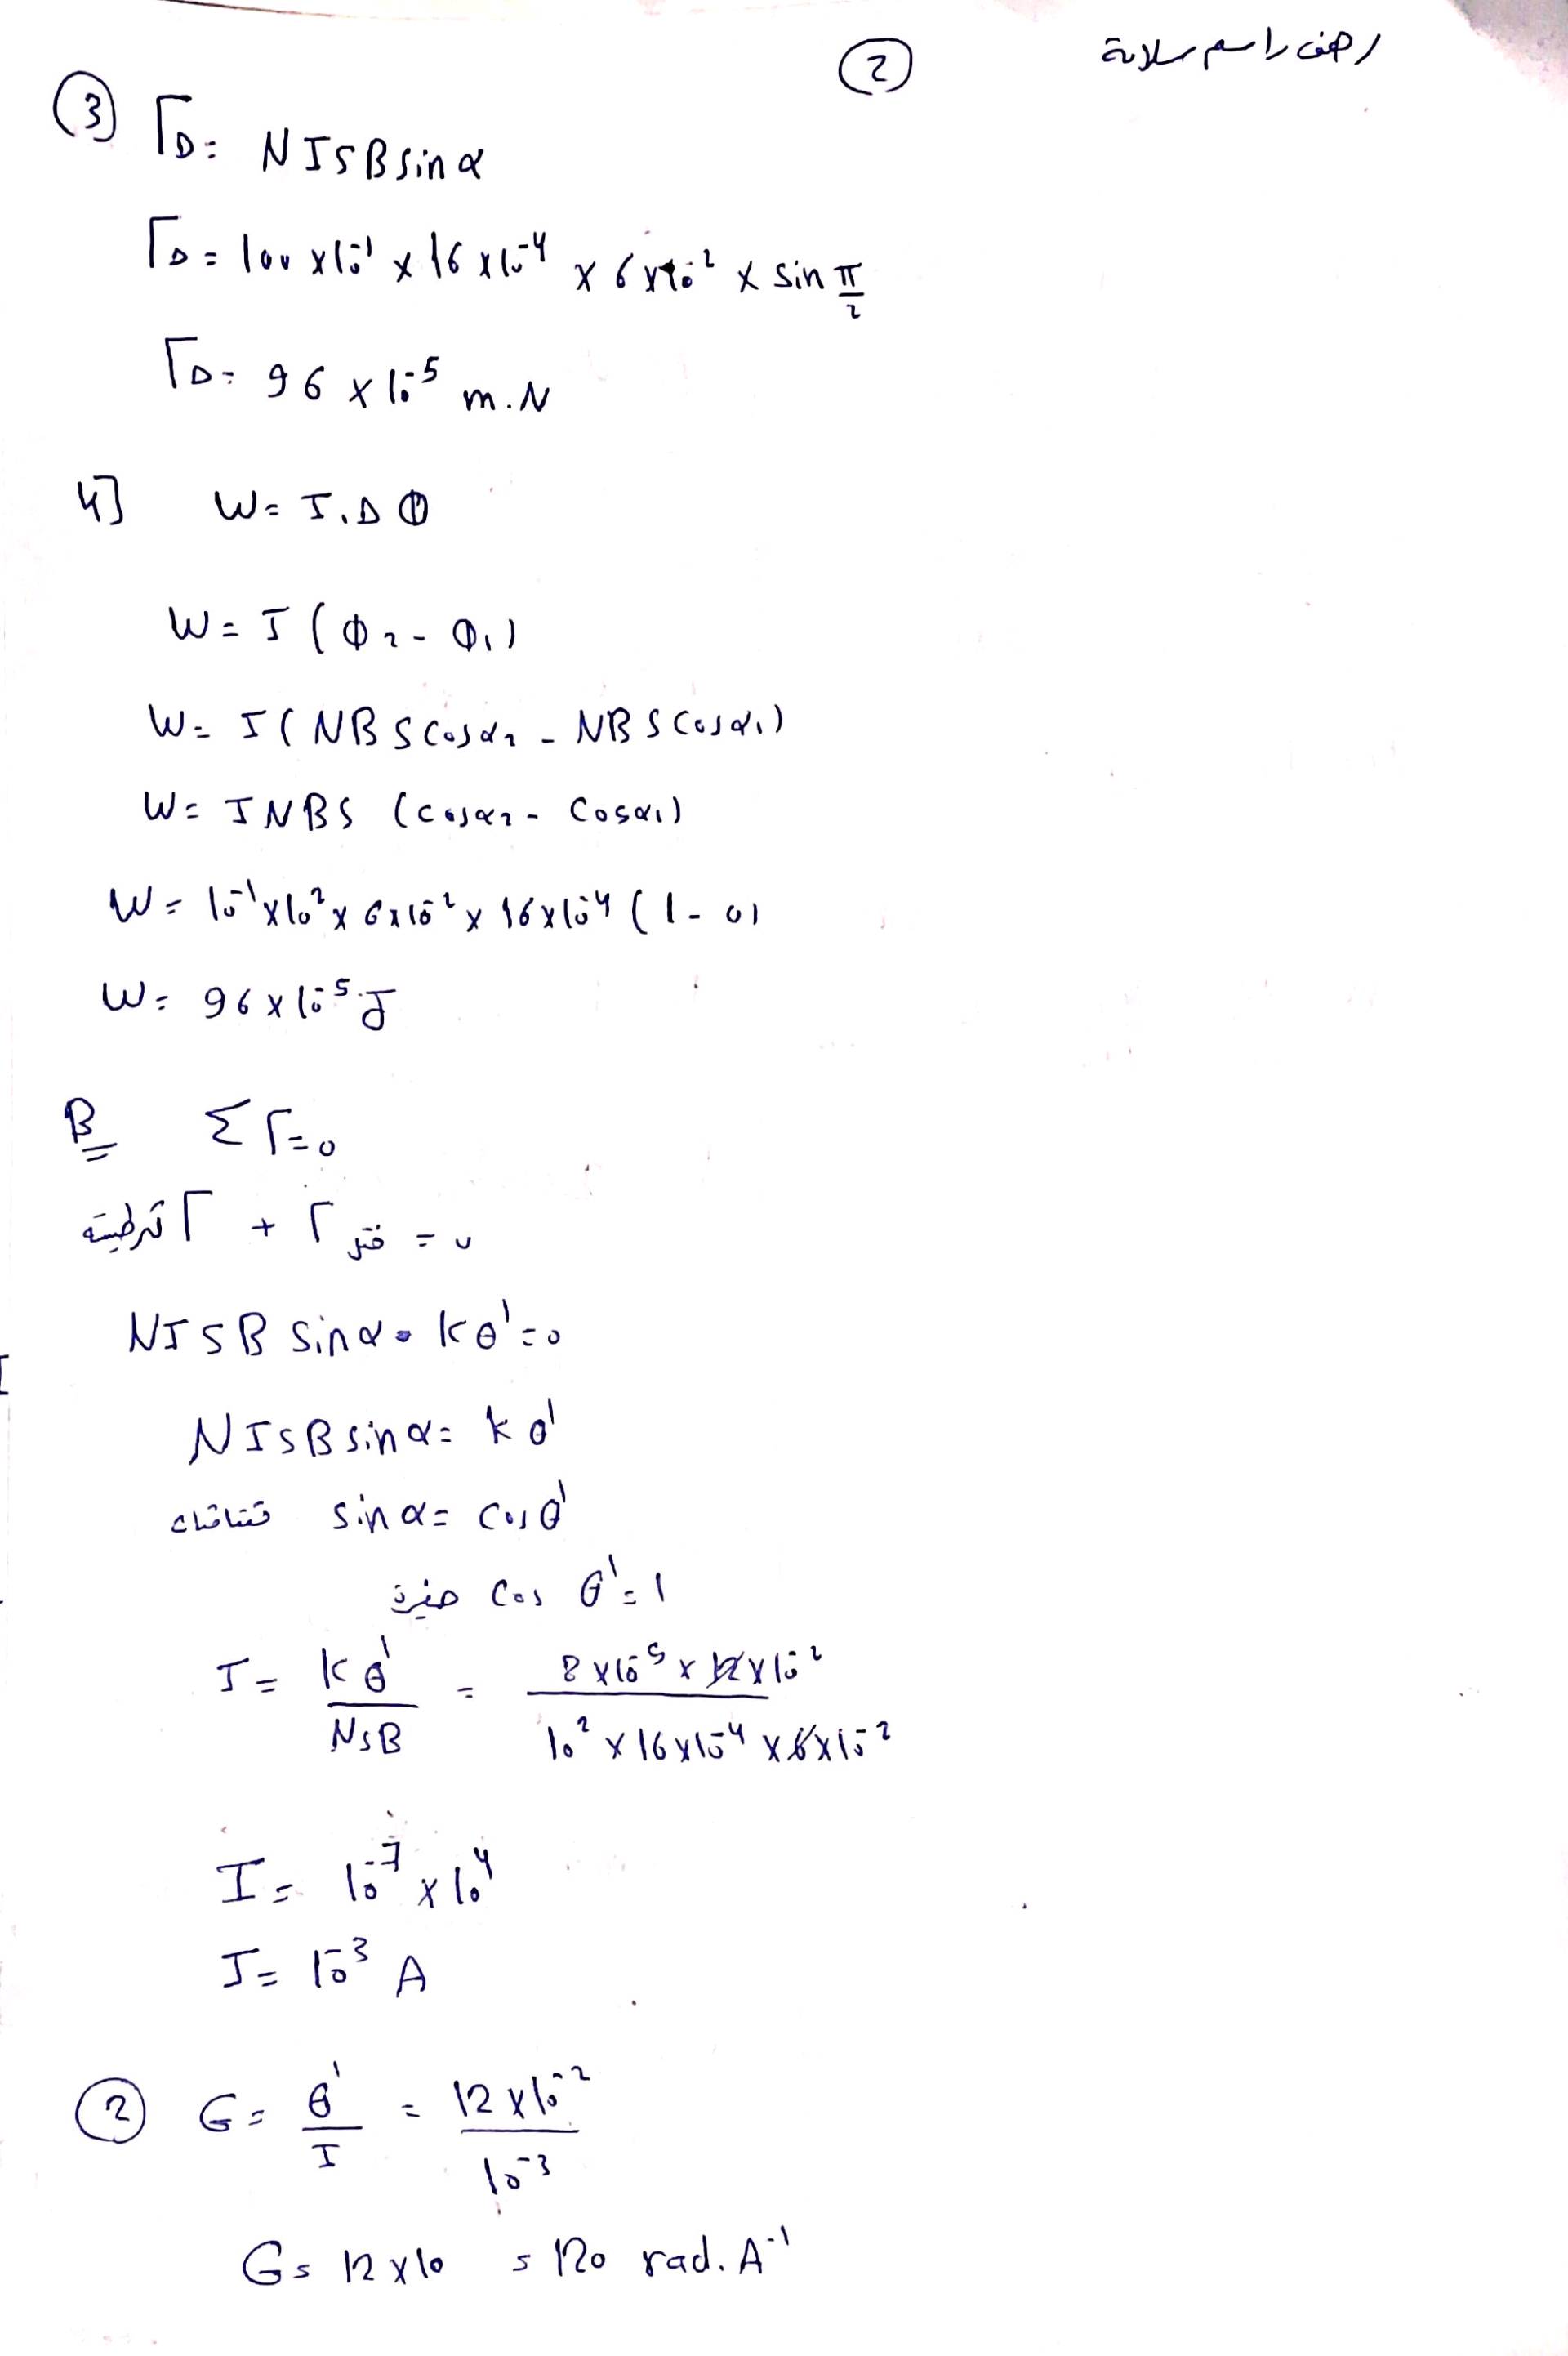 رهف راسم سلامة
②
③ Γ_Δ = N I S B sin α
Γ_Δ = 100 × 10⁻¹ × 16 × 10⁻⁴ × 6 × 10⁻² × sin π/2
Γ_Δ = 96 × 10⁻⁵ m.N
4] W = I . Δ Φ
W = I (Φ₂ - Φ₁)
W = I (N B S cos α₂ - N B S cos α₁)
W = I N B S (cos α₂ - cos α₁)
W = 10⁻¹ × 10² × 6 × 10⁻² × 16 × 10⁻⁴ (1 - 0)
W = 96 × 10⁻⁵ J
B Σ Γ = 0
Γ كهرطيسية + Γ فتل = 0
N I S B sin α - k θ' = 0
N I S B sin α = k θ'
sin α = cos θ'
صغيرة cos θ' = 1
I = k θ' / N S B = 8 × 10⁻⁵ × 12 × 10⁻² / 10² × 16 × 10⁻⁴ × 6 × 10⁻²
I = 10⁻⁷ × 10⁴
I = 10⁻³ A
② G = θ' / I = 12 × 10⁻² / 10⁻³
G = 12 × 10 = 120 rad . A⁻¹